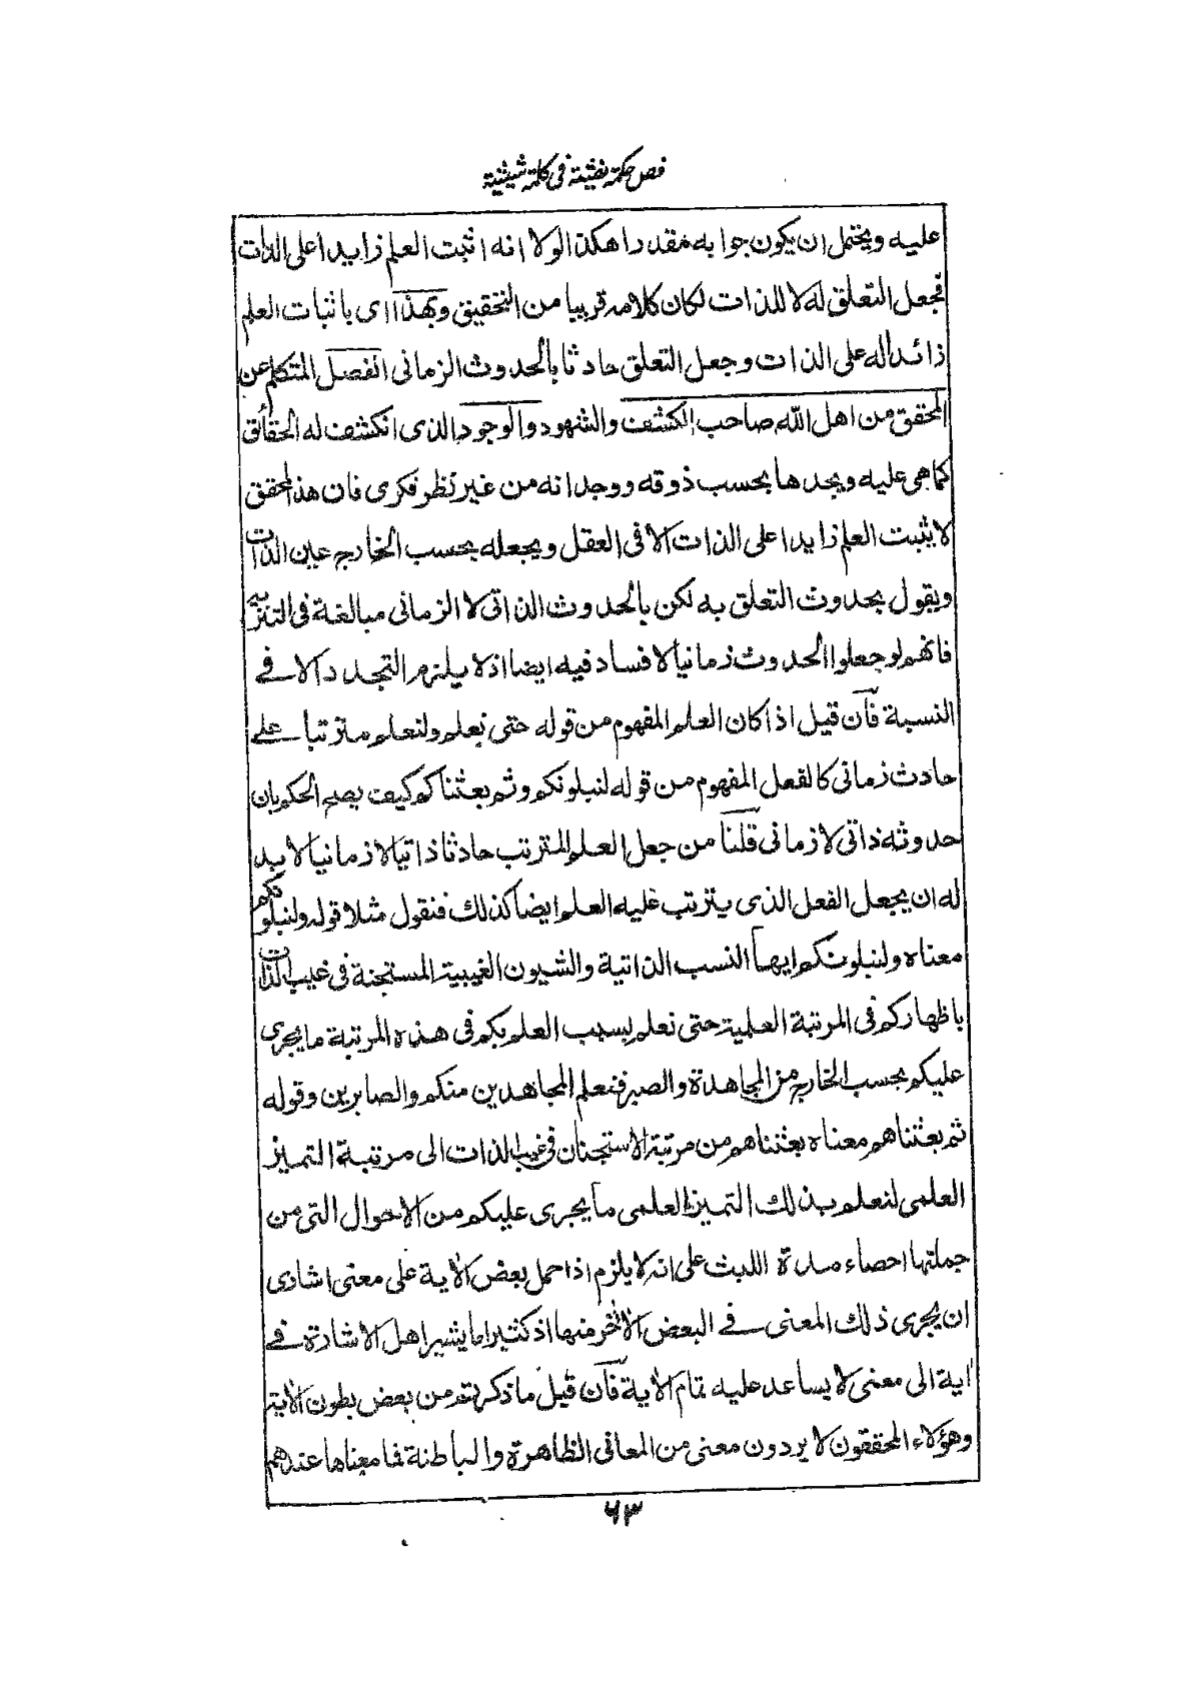 فص حكمة نفثية فى كلمة شيثية
عليه ويحتمل ان يكون جوابه مقدرا هكذا لولا انه اثبت العلم زايدا على الذات
فجعل التعلق له لا للذات لكان كلامه قريبا من التحقيق وبهذا اى باثبات العلم
زائدا له على الذات وجعل التعلق حادثا بالحدوث الزمانى انفصل المتكلم عن
المحقق من اهل الله صاحب الكشف والشهود والوجود الذى انكشف له الحقائق
كما هى عليه ويجدها بحسب ذوقه ووجدانه من غير نظر فكرى فان هذا المحقق
لا يثبت العلم زايدا على الذات الا فى العقل ويجعله بحسب الخارج عين الذات
ويقول بحدوث التعلق به لكن بالحدوث الذاتى لا الزمانى مبالغة فى التنزيه
فانهم لو جعلوا الحدوث زمانيا لا فساد فيه ايضا اذ لا يلزم التجدد الا فے
النسبة فآن قيل اذا كان العلم المفهوم من قوله حتى نعلم ولنعلم مترتبا علے
حادث زمانى كالفعل المفهوم من قوله لنبلونكم وثم بعثناكم كيف يصح الحكم بان
حدوثه ذاتى لا زمانى قلنا من جعل العلم المترتب حادثا ذاتيا لا زمانيا لا بد
له ان يجعل الفعل الذى يترتب عليه العلم ايضا كذلك فنقول مثلا قوله ولنبلونكم
معناه ولنبلونكم ايها النسب الذاتية والشيون الغيبية المستجنة فى غيب الذات
باظهاركم فى المرتبة العلمية حتى نعلم بسبب العلم بكم فى هذه المرتبة ما يجرى
عليكم بحسب الخارج من المجاهدة والصبر فنعلم المجاهدين منكم والصابرين وقوله
ثم بعثناهم معناه بعثناهم من مرتبة الاستجنان فى غيب الذات الى مرتبة التميز
العلمى لنعلم بذلك التميز العلمى ما يجرى عليكم من الاحوال التى من
جملتها احصاء مدة اللبث على انه لا يلزم اذا حمل بعض الآية على معنى اشارى
ان يجرى ذلك المعنى فے البعض الآخر منها اذ كثيرا ما يشير اهل الاشارة فے
آية الى معنى لا يساعد عليه تمام الآية فآن قيل ما ذكرتم من بعض بطون الآية
وهؤلاء المحققون لا يردون معنى من المعانى الظاهرة والباطنة فما معناها عندهم
٦٣